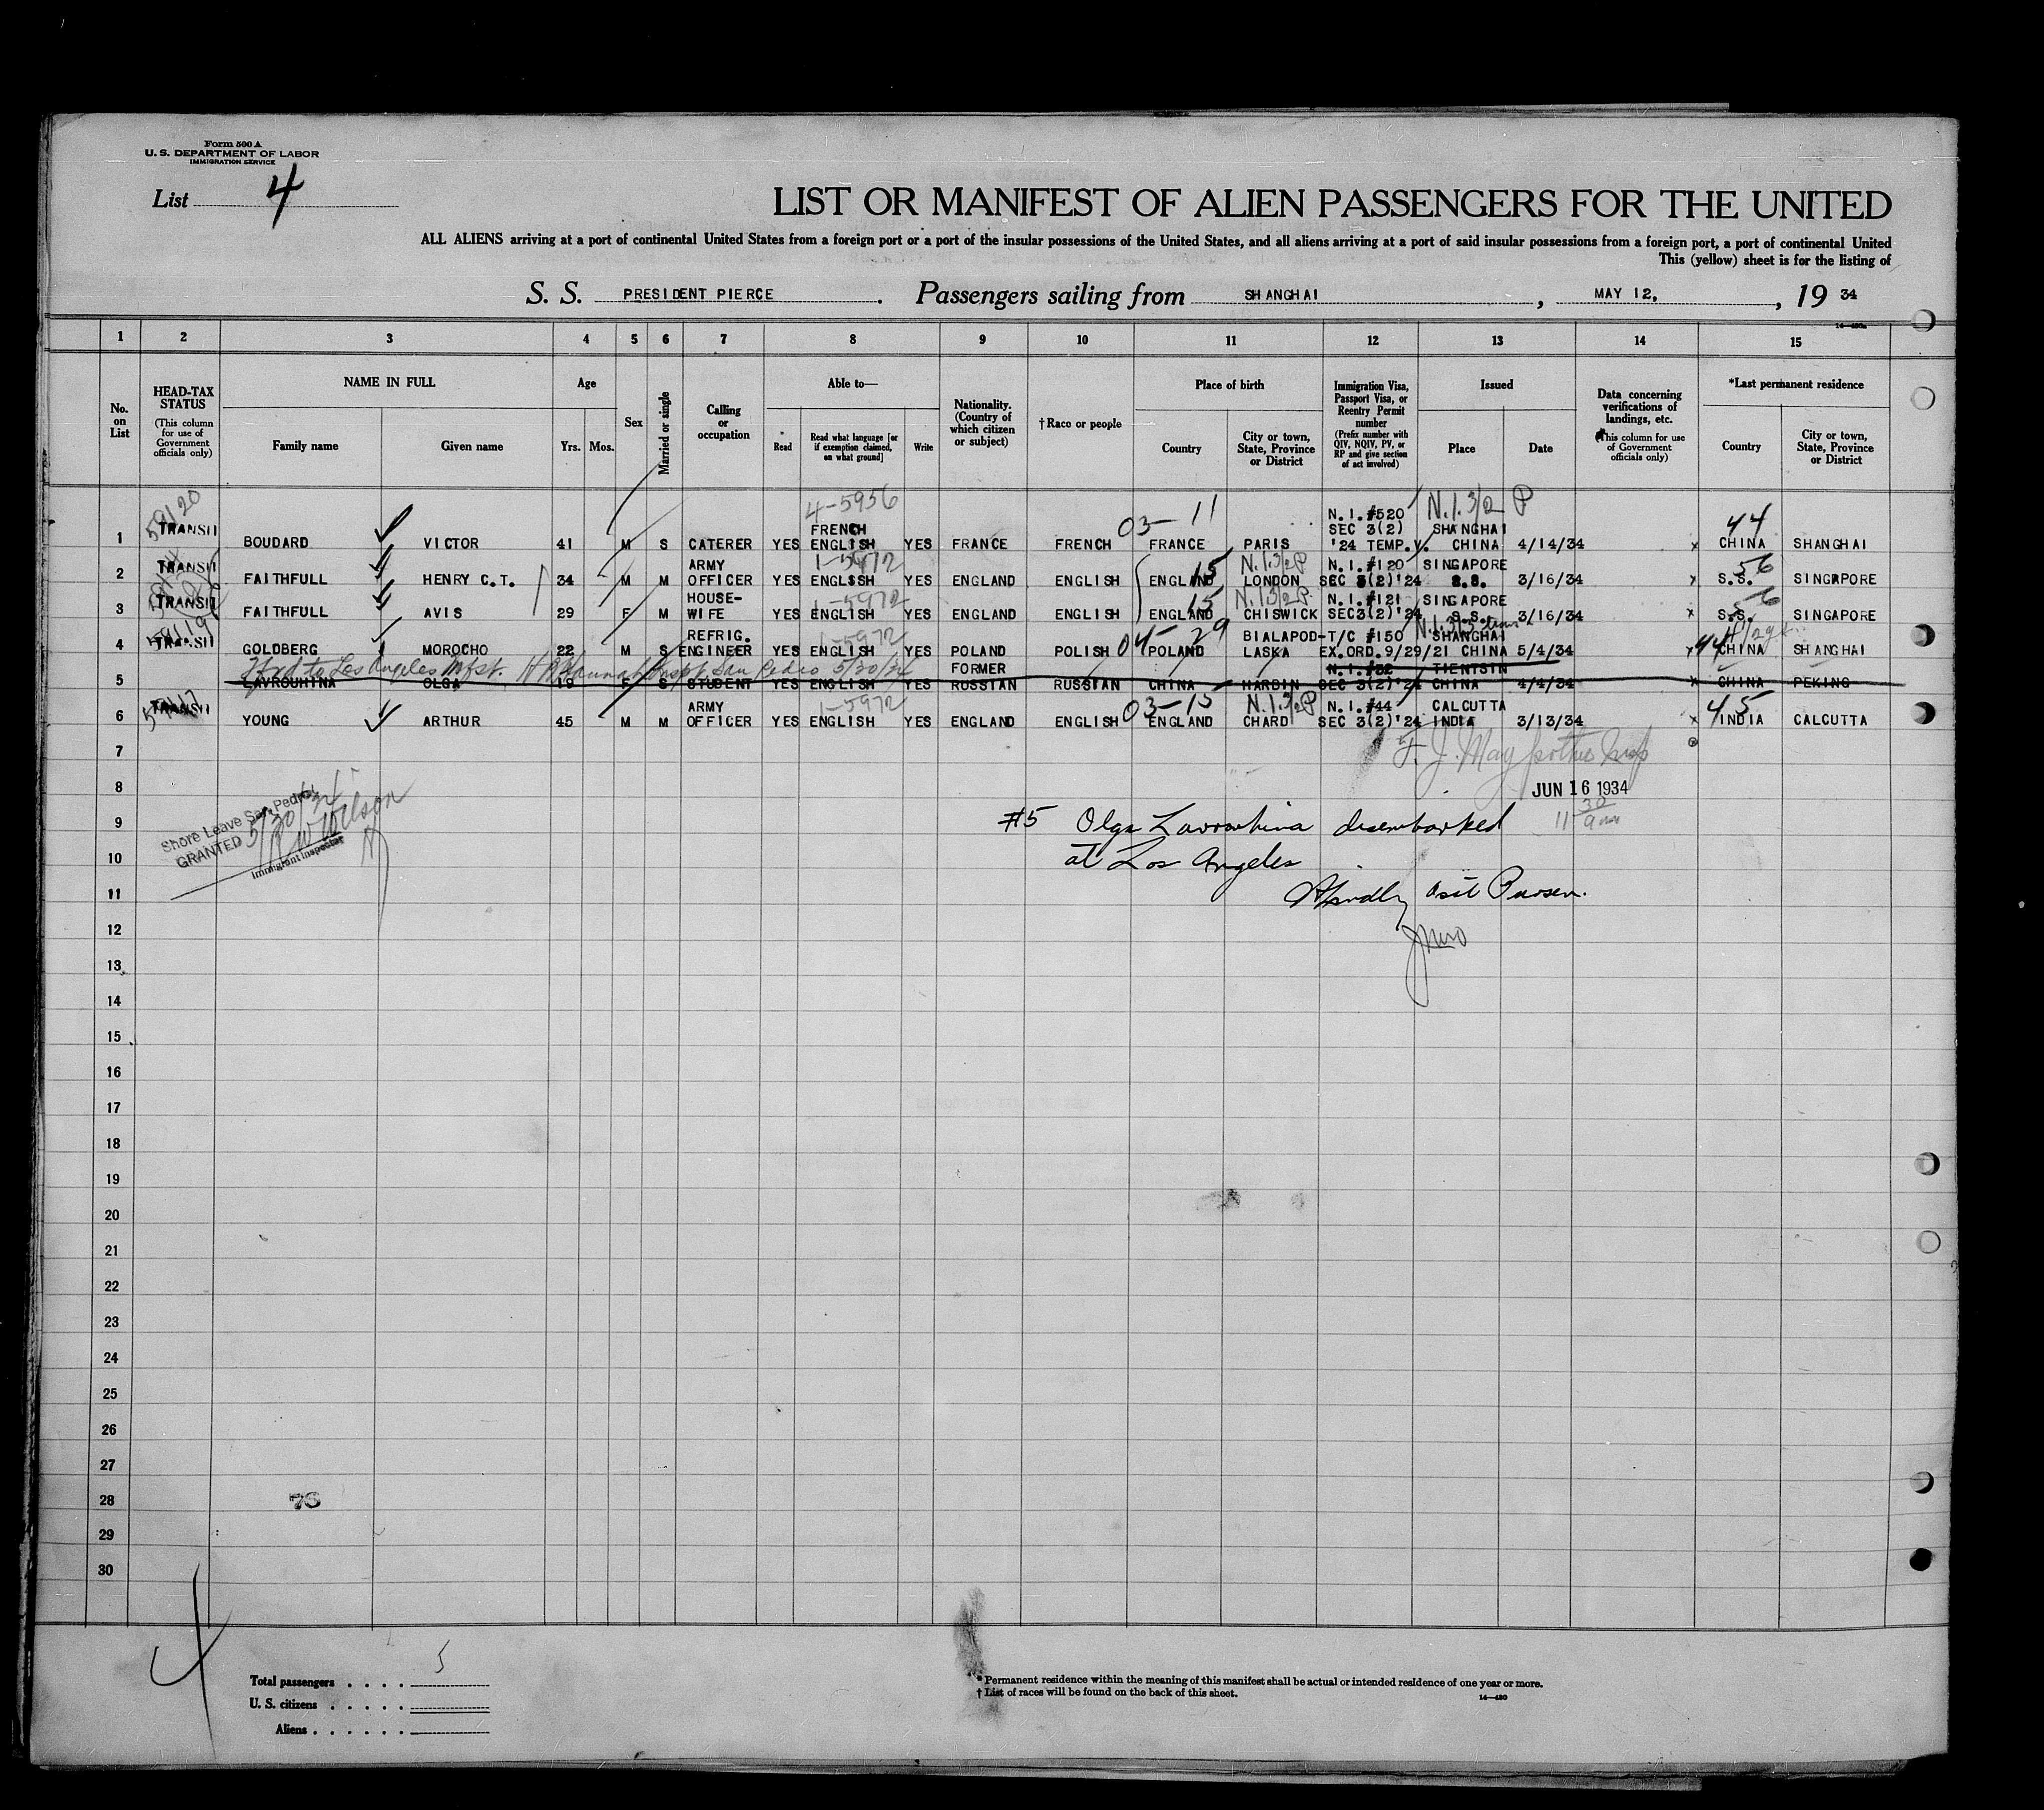 Form 500 A
U. S. DEPARTMENT OF LABOR
IMMIGRATION SERVICE
List 4
LIST OR MANIFEST OF ALIEN PASSENGERS FOR THE UNITED
ALL ALIENS arriving at a port of continental United States from a foreign port or a port of the insular possessions of the United States, and all aliens arriving at a port of said insular possessions from a foreign port, a port of continental United
This (yellow) sheet is for the listing of
S. S. PRESIDENT PIERCE. Passengers sailing from SHANGHAI, MAY 12, 19 34
1 2 3 4 5 6 7 8 9 10 11 12 13 14 15
No. on List
HEAD-TAX STATUS
(This column for use of Government officials only)
NAME IN FULL
Family name Given name
Age
Yrs. Mos.
Sex
Married or single
Calling or occupation
Able to—
Read
Read what language [or if exemption claimed, on what ground]
Write
Nationality. (Country of which citizen or subject)
†Race or people
Place of birth
Country
City or town, State, Province or District
Immigration Visa, Passport Visa, or Reentry Permit number
(Prefix number with QIV, NQIV, PV, or RP and give section of act involved)
Issued
Place Date
Data concerning verifications of landings, etc.
(This column for use of Government officials only)
*Last permanent residence
Country
City or town, State, Province or District
59120 4-5956 03-11 N.I. 3/2 P 44
1 TRANSIT BOUDARD VICTOR 41 M S CATERER YES FRENCH ENGLISH YES FRANCE FRENCH FRANCE PARIS N.I.#520 SEC 3(2) '24 TEMP.V. SHANGHAI CHINA 4/14/34 x CHINA SHANGHAI
1-5972 15 N.I.3/2P 56
2 TRANSIT FAITHFULL HENRY C.T. 34 M M ARMY OFFICER YES ENGLSSH YES ENGLAND ENGLISH ENGLAND LONDON N.I.#120 SEC 3(2)'24 SINGAPORE S.S. 3/16/34 x S.S. SINGAPORE
1-5972 15 N.I.3/2P 56
3 TRANSIT FAITHFULL AVIS 29 F M HOUSE-WIFE YES ENGLISH YES ENGLAND ENGLISH ENGLAND CHISWICK N.I.#121 SEC3(2)'24 SINGAPORE S.S. 3/16/34 x S.S. SINGAPORE
59119 1-5972 04-29 44
4 TRANSIT GOLDBERG MOROCHO 22 M S REFRIG. ENGINEER YES ENGLISH YES POLAND POLISH POLAND BIALAPOD-LASKA T/C #150 EX.ORD.9/29/21 SHANGHAI CHINA 5/4/34 x CHINA SHANGHAI
Tfrd to Los Angeles Mfst. San Pedro 5/30/34
5 LAVROUHINA OLGA 19 F S STUDENT YES ENGLISH YES FORMER RUSSIAN RUSSIAN CHINA HARBIN N.I.#32 SEC 3(2)'24 TIENTSIN CHINA 4/4/34 x CHINA PEKING
1-5972 03-15 N.I.3/2P 45
6 TRANSIT YOUNG ARTHUR 45 M M ARMY OFFICER YES ENGLISH YES ENGLAND ENGLISH ENGLAND CHARD N.I.#44 SEC 3(2)'24 CALCUTTA INDIA 3/13/34 x INDIA CALCUTTA
7
8 JUN 16 1934
Shore Leave San Pedro
GRANTED 5/30/34
R W Wilson
Immigrant Inspector
9 #5 Olga Lavrouhina disembarked
10 at Los Angeles
11
12
13
14
15
16
17
18
19
20
21
22
23
24
25
26
27
28 76
29
30
Total passengers 5
U. S. citizens
Aliens
* Permanent residence within the meaning of this manifest shall be actual or intended residence of one year or more.
† List of races will be found on the back of this sheet.
14—430